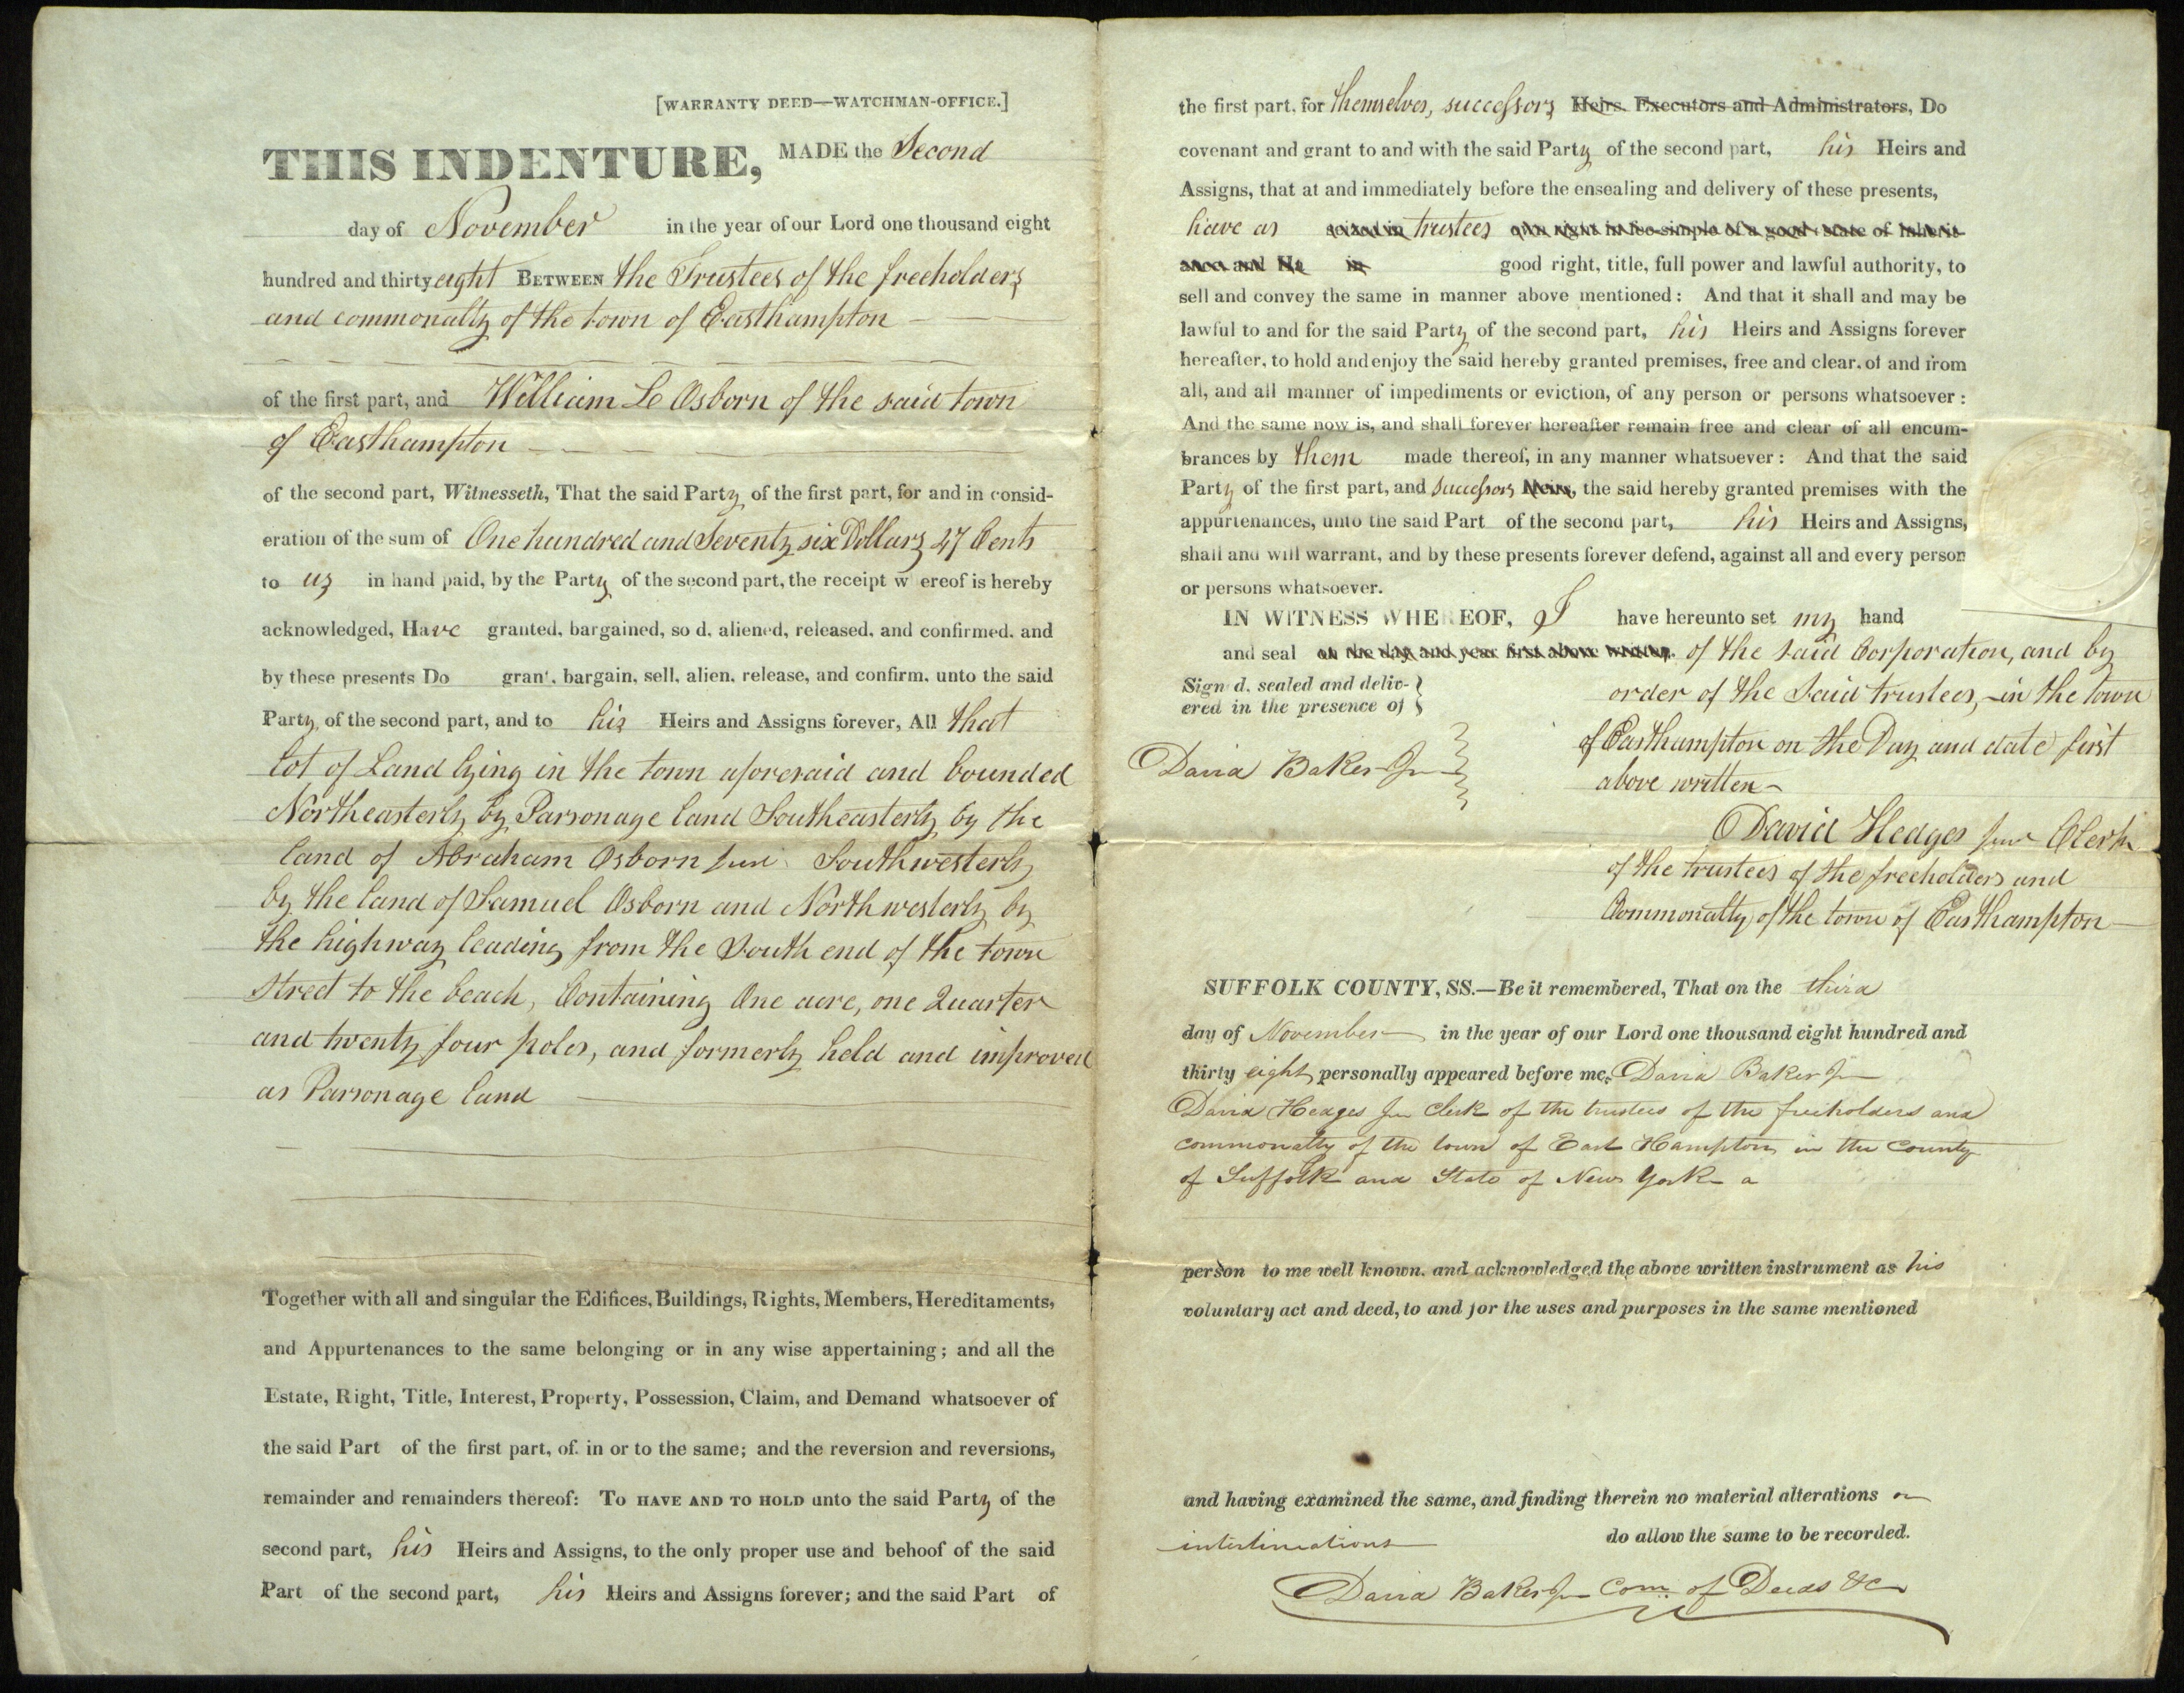 [WARRANTY DEED—WATCHMAN-OFFICE.]
THIS INDENTURE, MADE the Second
day of November in the year of our Lord one thousand eight
hundred and thirty eight BETWEEN the Trustees of the freeholders
and commonalty of the town of Easthampton
of the first part, and William L Osborn of the said town
of Easthampton
of the second part, Witnesseth, That the said Party of the first part, for and in consid-
eration of the sum of One hundred and Seventy six Dollars 47 Cents
to us in hand paid, by the Party of the second part, the receipt w ereof is hereby
acknowledged, Have granted, bargained, so d, aliened, released, and confirmed, and
by these presents Do grant, bargain, sell, alien, release, and confirm, unto the said
Party of the second part, and to his Heirs and Assigns forever, All that
lot of Land lying in the town aforesaid and bounded
Northeasterly by Parsonage land Southeasterly by the
land of Abraham Osborn junr Southwesterly
by the land of Samuel Osborn and Northwesterly by
the highway leading from the South end of the town
street to the beach, Containing One acre, one Quarter
and twenty four poles, and formerly held and improved
as Parsonage land
Together with all and singular the Edifices, Buildings, Rights, Members, Hereditaments,
and Appurtenances to the same belonging or in any wise appertaining; and all the
Estate, Right, Title, Interest, Property, Possession, Claim, and Demand whatsoever of
the said Part of the first part, of, in or to the same; and the reversion and reversions,
remainder and remainders thereof: TO HAVE AND TO HOLD unto the said Party of the
second part, his Heirs and Assigns, to the only proper use and behoof of the said
Part of the second part, his Heirs and Assigns forever; and the said Part of
the first part, for themselves, successors Heirs, Executors and Administrators, Do
covenant and grant to and with the said Party of the second part, his Heirs and
Assigns, that at and immediately before the ensealing and delivery of these presents,
have as seized in trustees own right in fee-simple of a good estate of Inherit-
ance and Ha in good right, title, full power and lawful authority, to
sell and convey the same in manner above mentioned: And that it shall and may be
lawful to and for the said Party of the second part, his Heirs and Assigns forever
hereafter, to hold and enjoy the said hereby granted premises, free and clear, of and from
all, and all manner of impediments or eviction, of any person or persons whatsoever:
And the same now is, and shall forever hereafter remain free and clear of all encum-
brances by them made thereof, in any manner whatsoever: And that the said
Party of the first part, and successors Heirs, the said hereby granted premises with the
appurtenances, unto the said Part of the second part, his Heirs and Assigns,
shall and will warrant, and by these presents forever defend, against all and every person
or persons whatsoever.
IN WITNESS WHEREOF, I have hereunto set my hand
and seal on the day and year first above written. of the said Corporation, and by
Sign d, sealed and deliv-
ered in the presence of
order of the said trustees, in the town
of Easthampton on the Day and date first
David Baker Jr
above written
David Hedges junr Clerk
of the trustees of the freeholders and
Commonalty of the town of Easthampton
SUFFOLK COUNTY, SS.—Be it remembered, That on the third
day of November in the year of our Lord one thousand eight hundred and
thirty eight personally appeared before me, David Baker Jr
David Hedges Jr Clerk of the trustees of the freeholders and
commonalty of the town of East Hampton in the County
of Suffolk and State of New York a
person to me well known, and acknowledged the above written instrument as his
voluntary act and deed, to and for the uses and purposes in the same mentioned
and having examined the same, and finding therein no material alterations or
interlineations do allow the same to be recorded.
David Baker Jr Com. of Deeds &c